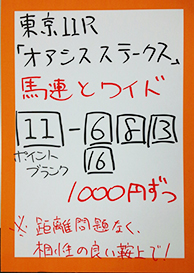 東京11R
「オアシスステークス」
馬連とワイド
11-6 8 13
16
ポイント
ブランク
1000円ずつ
※距離問題なく、
相性の良い鞍上で！